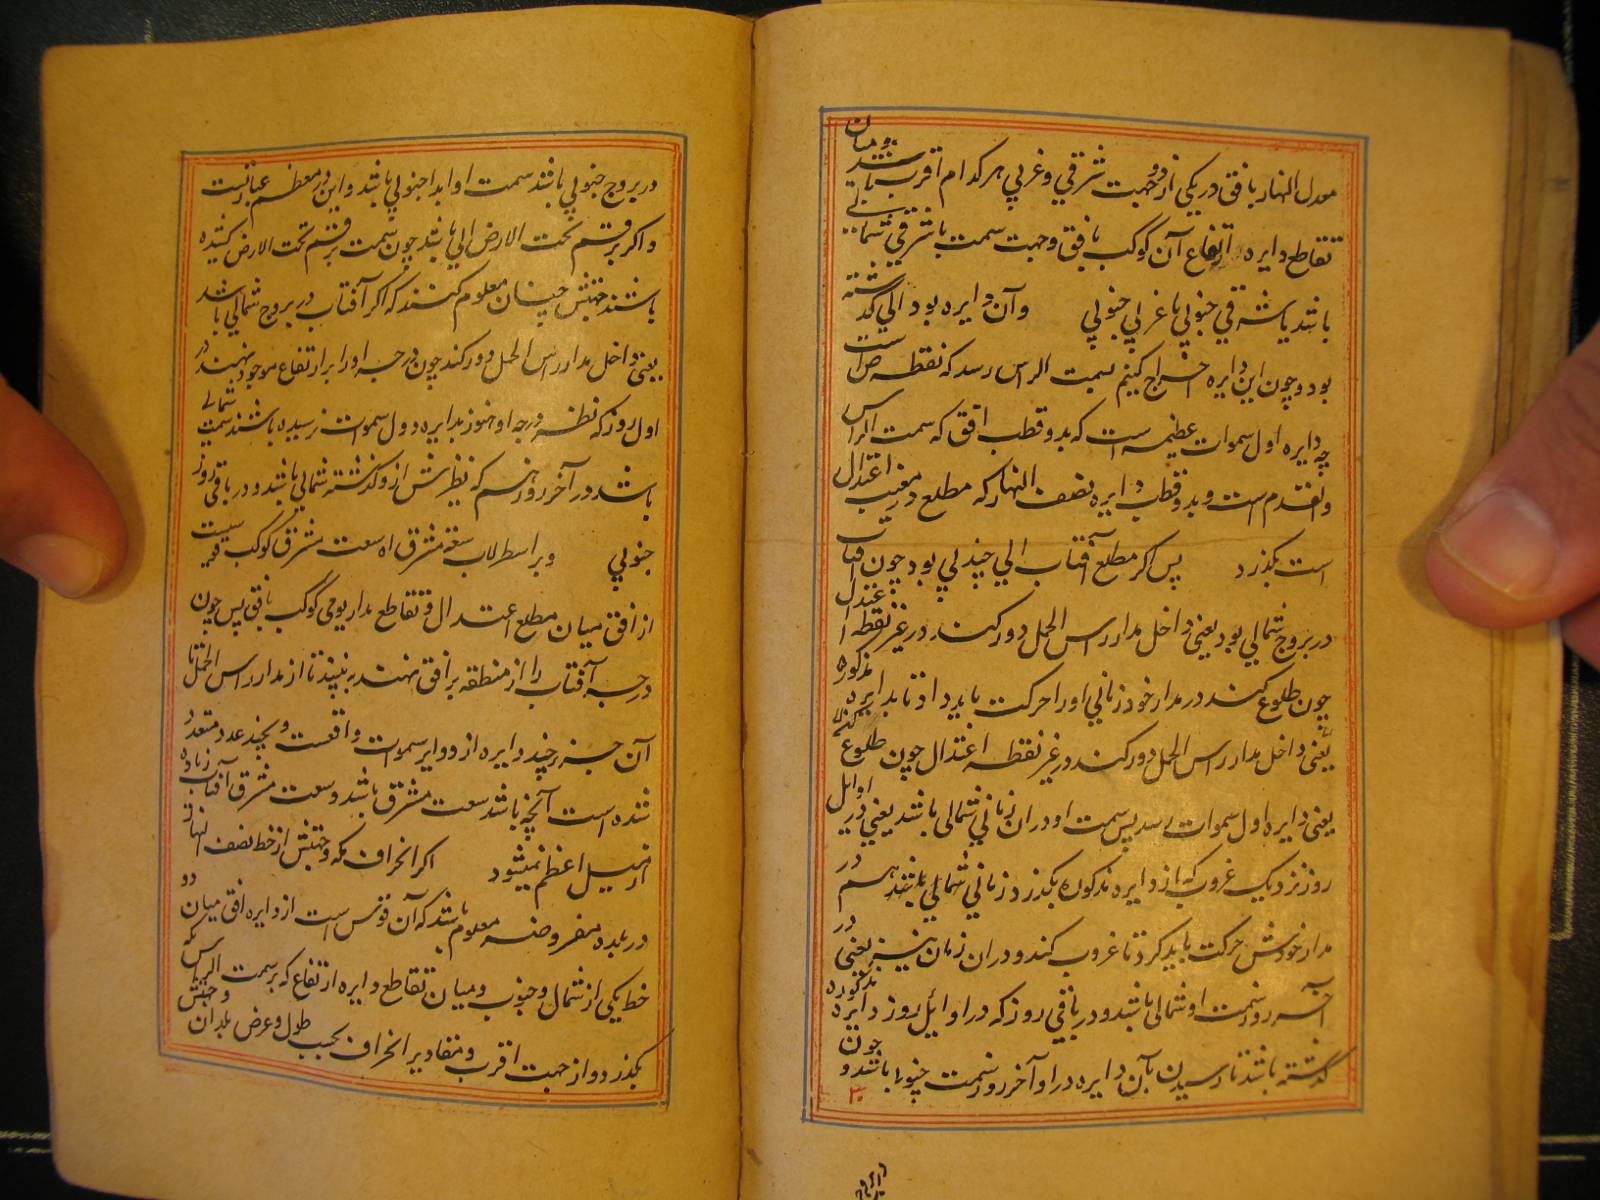 معدل النهار با فق در یکی از دو جهت شرقی و غربی هر کدام اقرب باشد و میان
تقاطع دایره ارتفاع آن کوکب بافق و جهت سمت یا شرقی شمالی
باشد یا شرقی جنوبی یا غربی جنوبی وآن دایره بود الی گذشته
بود و چون این دایره اخراج کنیم بسمت الراس رسد که نقطه ص است
چه دایره اول سموات عظیمه است که بدو قطب افق که سمت الراس
و القدم است و بدو قطب دایره نصف النهار که مطلع و مغیب اعتدال
است بگذرد پس اگر مطلع آفتاب الی چندلی بود چون آفتاب
در بروج شمالی بود یعنی داخل مدار راس الحمل دور کند در غیر نقطه اعتدال
چون طلوع کند در مدار خود زمانی او را حرکت باید داد تا بدایره مذکوره
یعنی داخل مدار راس الحمل دور کند در غیر نقطه اعتدال چون طلوع کند
یعنی دایره اول سموات رسد پس سمت او در ان زمانی شمالی باشد یعنی در اوایل
روز نزدیک غروب که از دایره مذکوره بگذرد زمانی شمالی باشد هم در
مدار خودش حرکت باید کرد تا غروب کند و در ان زمان نیز یعنی در
آخر روز سمت او شمالی باشد و در باقی روز که در اوایل روز دایره مذکوره
گذشته باشد تا رسیدن بآن دایره در اواخر روز سمت جنوبی باشد و چون
۳۰
در بروج جنوبی باشد سمت او ابدا جنوبی باشد و این در معظم عمارتست
و اگر بر قسم تحت الارض الی باشد چون سمت بر قسم تحت الارض کشیده
باشند جهتش چنان معلوم کنند که اگر آفتاب در بروج شمالی باشد
یعنی داخل مدار راس الحمل دور کند چون درجه او را بر ارتفاع موجود نهند در
اول روز که نظیر درجه او هنوز بدایره اول سموات نرسیده باشند سمت شمالی
باشد در آخر روز هم که نظیرش از و گذشته شمالی باشد و در باقی روز
جنوبی و بر اسطرلاب سعة مشرق اه سعت مشرق کوکب قوسیست
از افق میان مطلع اعتدال و تقاطع مدار یومی کوکب بافق پس چون
درجه آفتاب را از منطقه بر افق نهند به بینند تا از مدار راس الحمل تا
آن جزء چند دایره از دوایر سموات واقعست و بچند عدد متعدد
شده است آنچه باشد سعت مشرق باشد و سعت مشرق آفتاب زیاده
از میل اعظم نمیشود اگر انحراف مکه و جهتش از خط نصف النهار
در بلده مفروضه معلوم باشد که آن قوس است از دایره افق میان دو
خط یکی از شمال و جنوب و میان تقاطع دایره ارتفاع که بر سمت الراس مکه
بگذرد و از جهت اقرب و مقادیر انحراف بحسب طول و عرض بلدان و جهتش